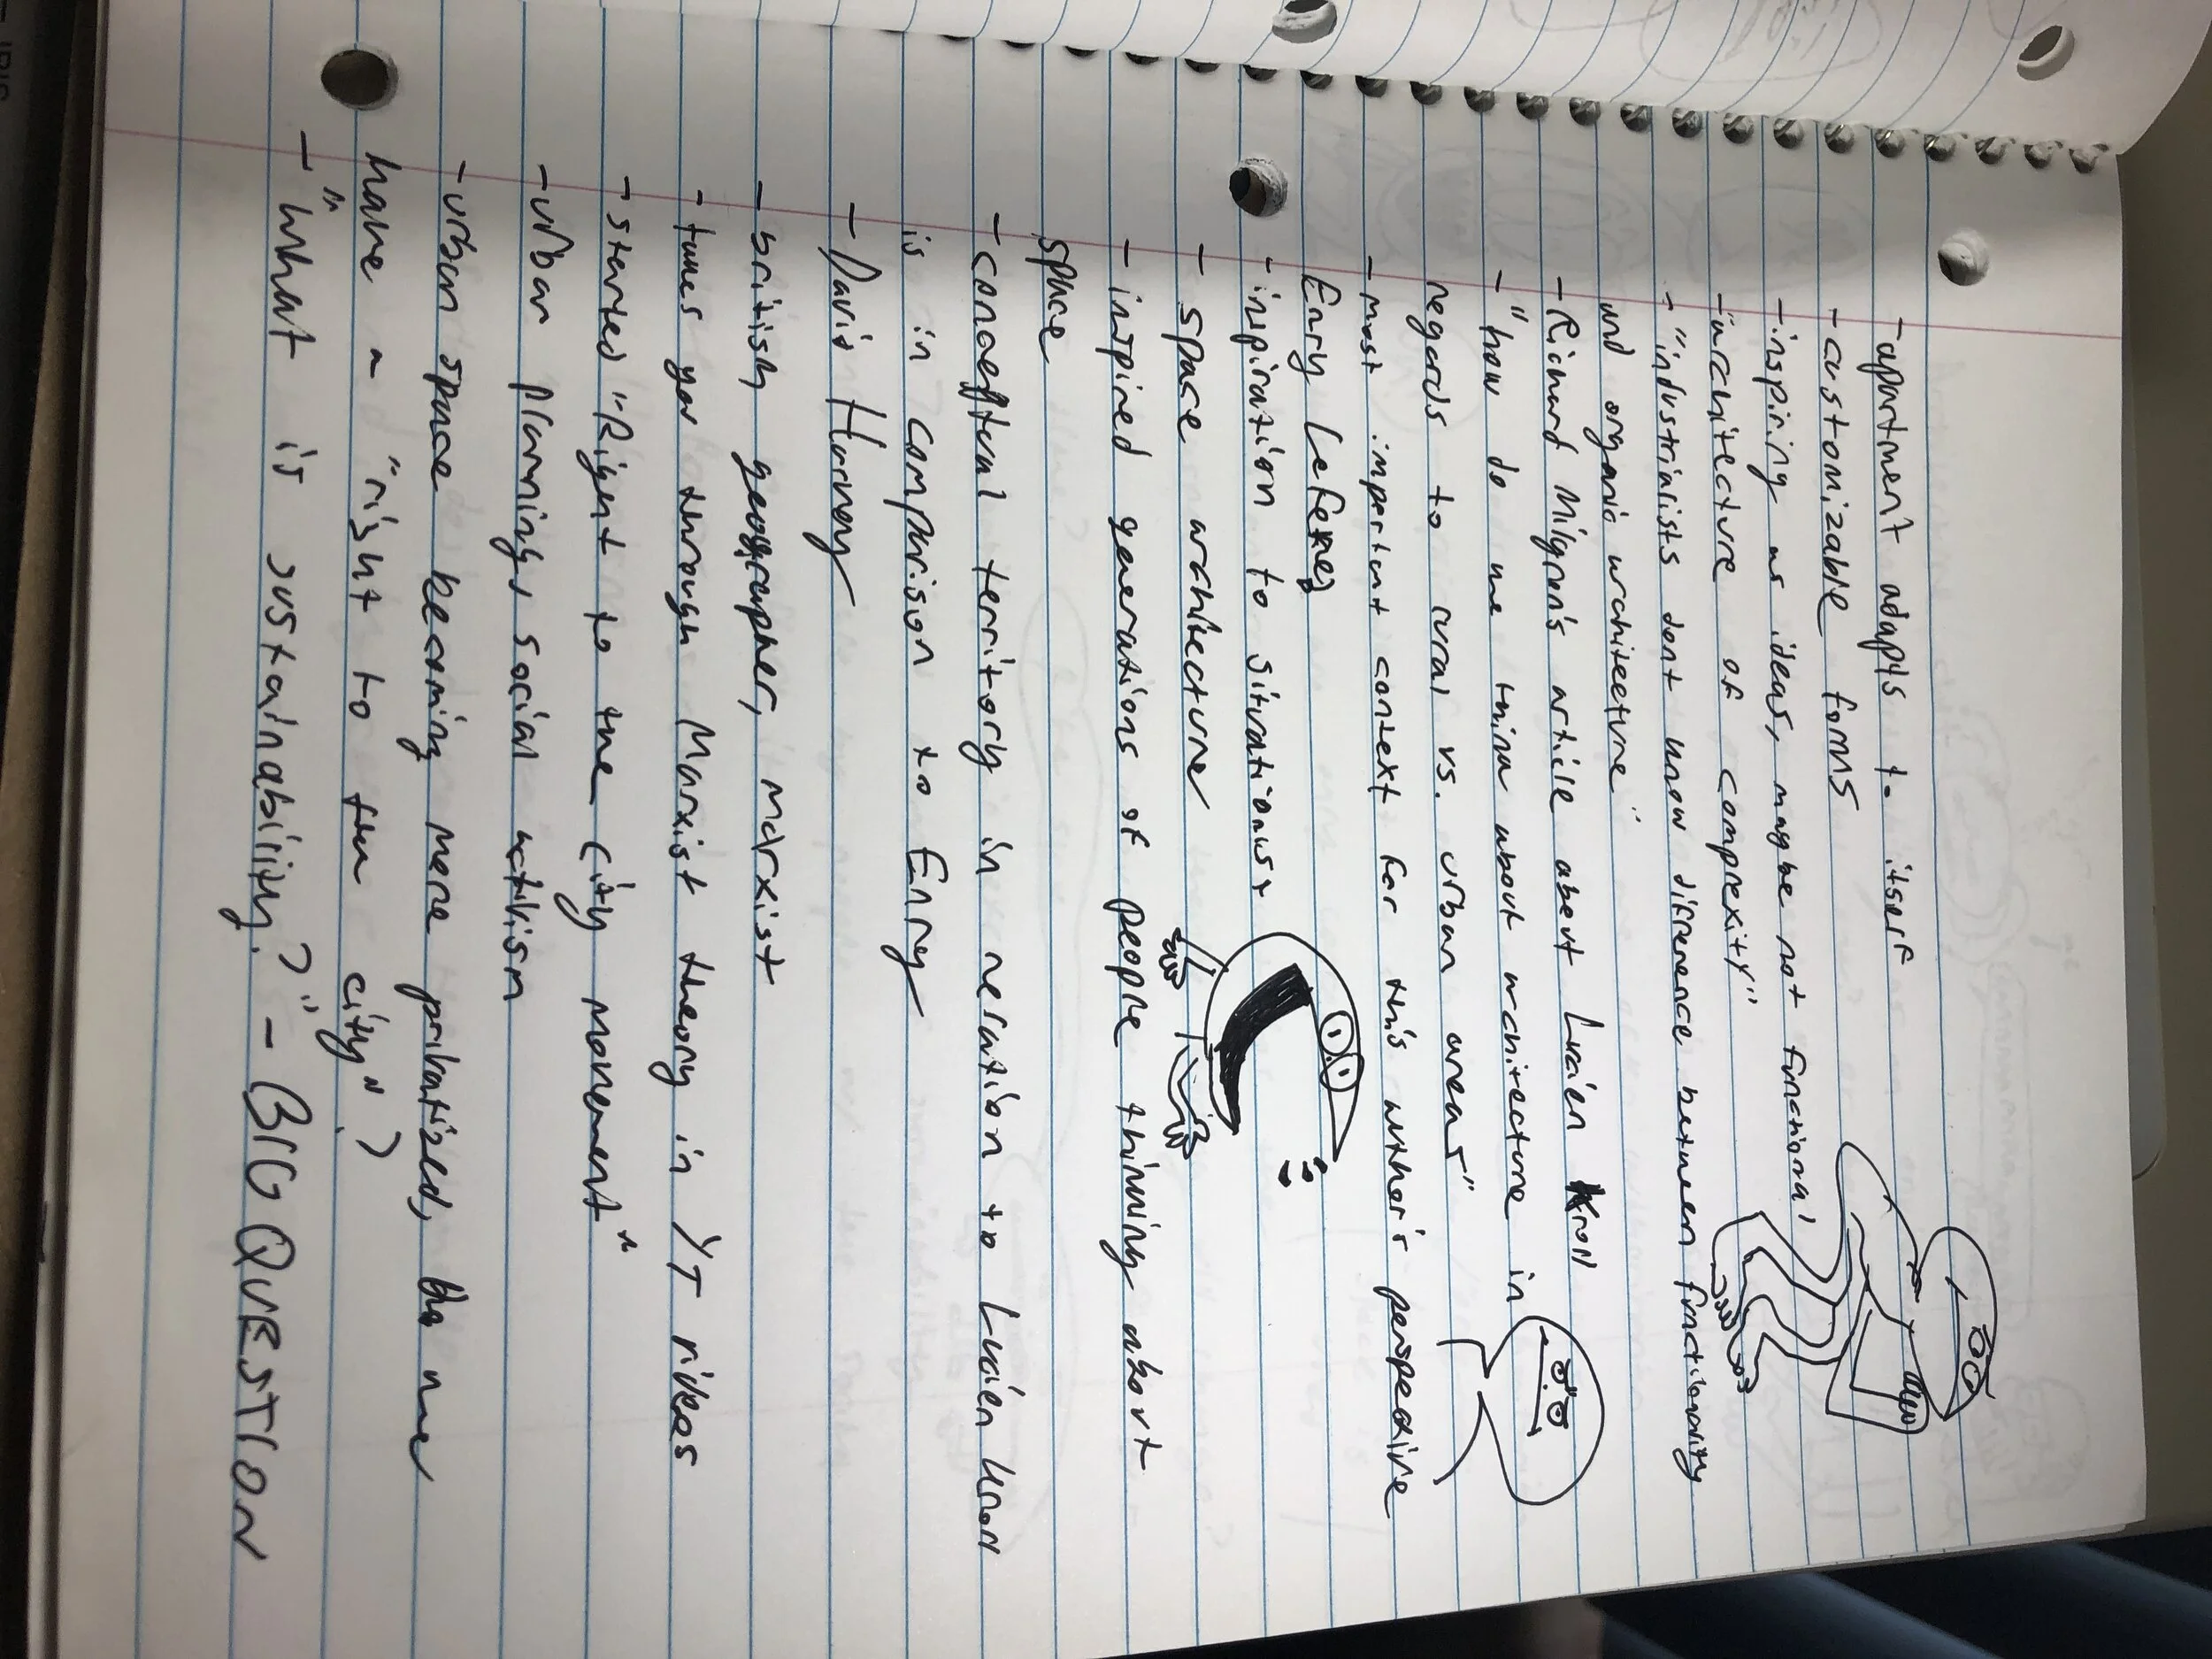 - apartment adapts to itself
- customizable forms
- inspiring as ideas, maybe not functional
- "architecture of complexity"
- "industrialists dont know difference between functionality
and organic architecture"
- Richard Milgram's article about Lucien Kroll
- "how do we think about architecture in
regards to rural vs. urban areas"
- most important context for this author's perspective
Enry Lefevre
- inspiration to situationist
- space architecture
- inspired generations of people thinking about
space
- conceptual territory in relation to Lucien Kroll
is in comparison to Enry
- David Harvey
- british geographer, marxist
- takes you through Marxist theory in YT videos
- started "Right to the City movement"
- urban planning, social activism
- urban space becoming more privatized, do we
have a "right to the city"?
- "what is sustainability?" - BIG QUESTION